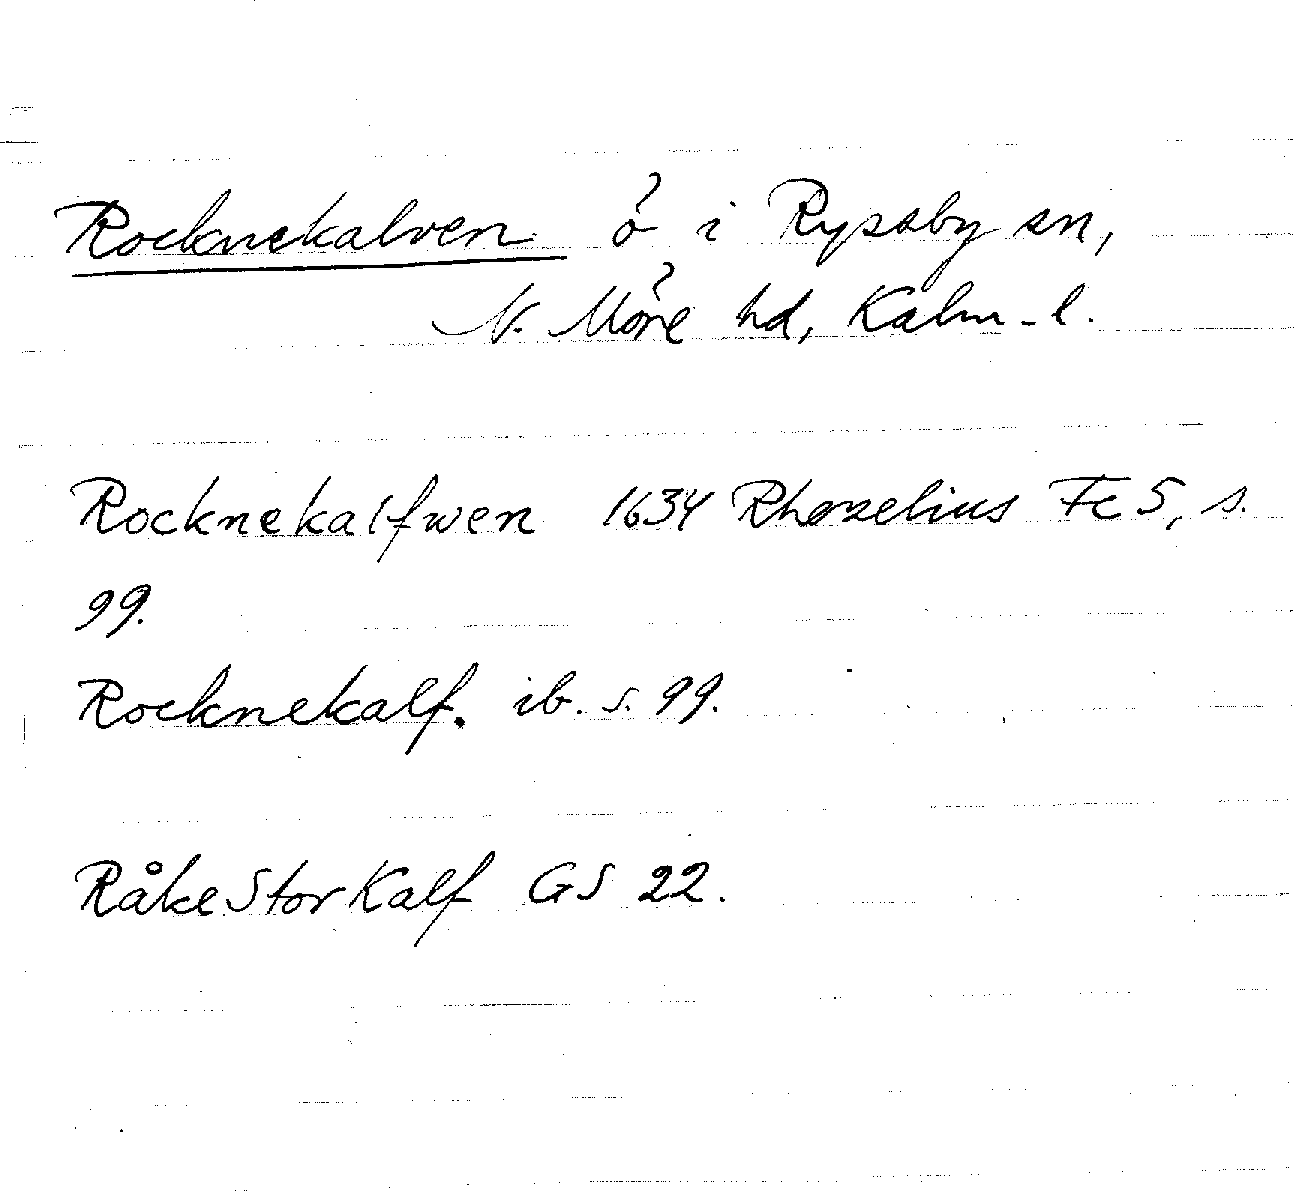 Rocknekalven ö i Ryssby sn,
N. Möre hd, Kalm. l.
Rocknekalfwen 1634 Rhezelius Fc 5, s.
99.
Rocknekalf. ib. s. 99.
Råke Stor Kalf GS 22.